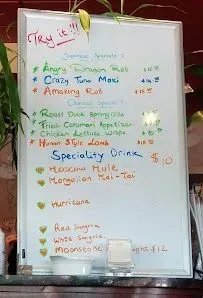 Try it!!!
Japanese Specials
* Angry Dragon Roll
* Crazy Tuna Maki
* Amazing Roll
Chinese Special
* Roast Duck Spring rolls
* Fried Calamari Appetizer
* Chicken Lettuce Wraps
* Hunan Style Lamb
Speciality Drink $10
Moscow Mule
Mongolian Mai-Tai
Hurricane
Red Sangria
White Sangria
Moonstone $12